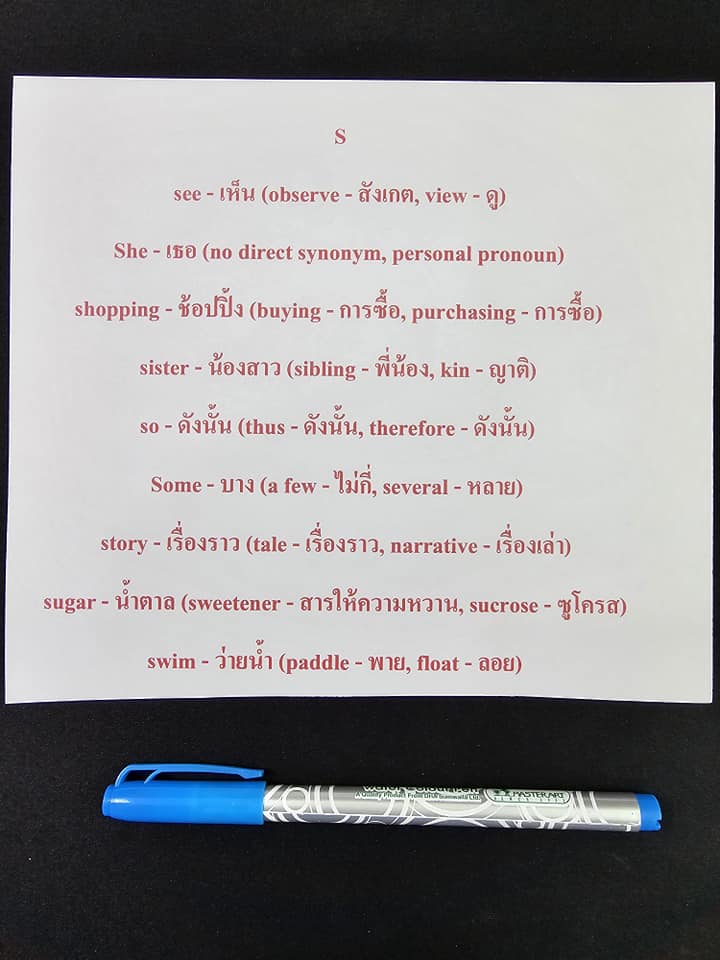 S
see - เห็น (observe - สังเกต, view - ดู)
She - เธอ (no direct synonym, personal pronoun)
shopping - ช้อปปิ้ง (buying - การซื้อ, purchasing - การซื้อ)
sister - น้องสาว (sibling - พี่น้อง, kin - ญาติ)
so - ดังนั้น (thus - ดังนั้น, therefore - ดังนั้น)
Some - บาง (a few - ไม่กี่, several - หลาย)
story - เรื่องราว (tale - เรื่องราว, narrative - เรื่องเล่า)
sugar - น้ำตาล (sweetener - สารให้ความหวาน, sucrose - ซูโครส)
swim - ว่ายน้ำ (paddle - พาย, float - ลอย)
MASTERART
A Quality Product From